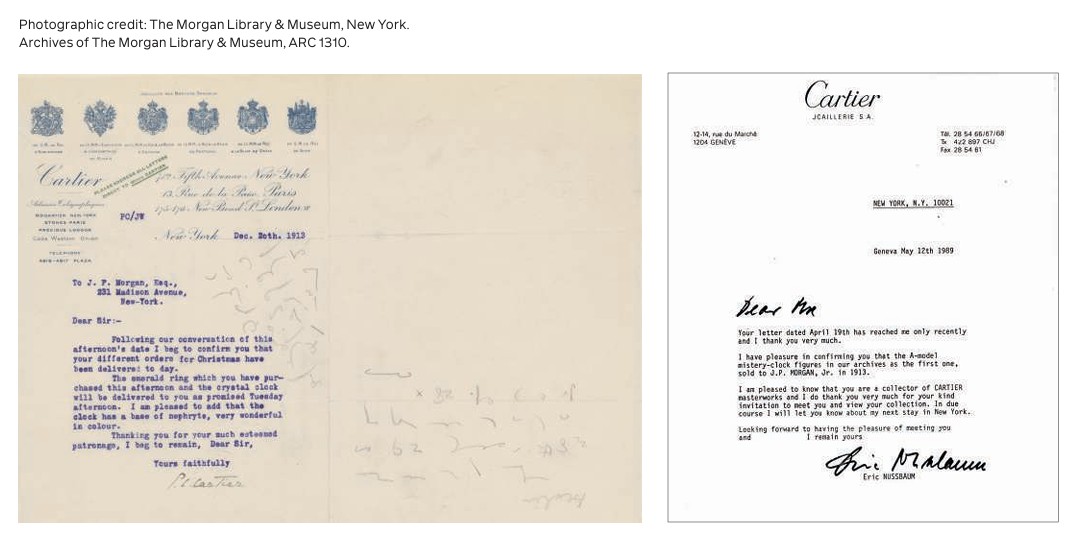 Photographic credit: The Morgan Library & Museum, New York.
Archives of The Morgan Library & Museum, ARC 1310.
Cartier
PLEASE ADDRESS ALL LETTERS
DIRECT TO
Fifth Avenue New York
13, Rue de la Paix, Paris
175-176 New Bond St London W
PC/JW
New York Dec. 20th. 1913
Code Western Union
TELEPHONE
PLAZA
To J. P. Morgan, Esq.,
231 Madison Avenue,
New-York.
Dear Sir:-
Following our conversation of this
afternoon's date I beg to confirm you that
your different orders for Christmas have
been delivered to day.
The emerald ring which you have pur-
chased this afternoon and the crystal clock
will be delivered to you as promised Tuesday
afternoon. I am pleased to add that the
clock has a base of nephryte, very wonderful
in colour.
Thanking you for your much esteemed
patronage, I beg to remain, Dear Sir,
Yours faithfully
Cartier
Cartier
JOAILLERIE S.A.
12-14, rue du Marché
1204 GENÈVE
Tél. 28 54 66/67/68
Tx 422 897 CHJ
Fax 28 54 61
NEW YORK, N.Y. 10021
Geneva May 12th 1989
Dear
Your letter dated April 19th has reached me only recently
and I thank you very much.
I have pleasure in confirming you that the A-model
mistery-clock figures in our archives as the first one,
sold to J.P. MORGAN, Jr. in 1913.
I am pleased to know that you are a collector of CARTIER
masterworks and I do thank you very much for your kind
invitation to meet you and view your collection. In due
course I will let you know about my next stay in New York.
Looking forward to having the pleasure of meeting you
and I remain yours
Eric NUSSBAUM